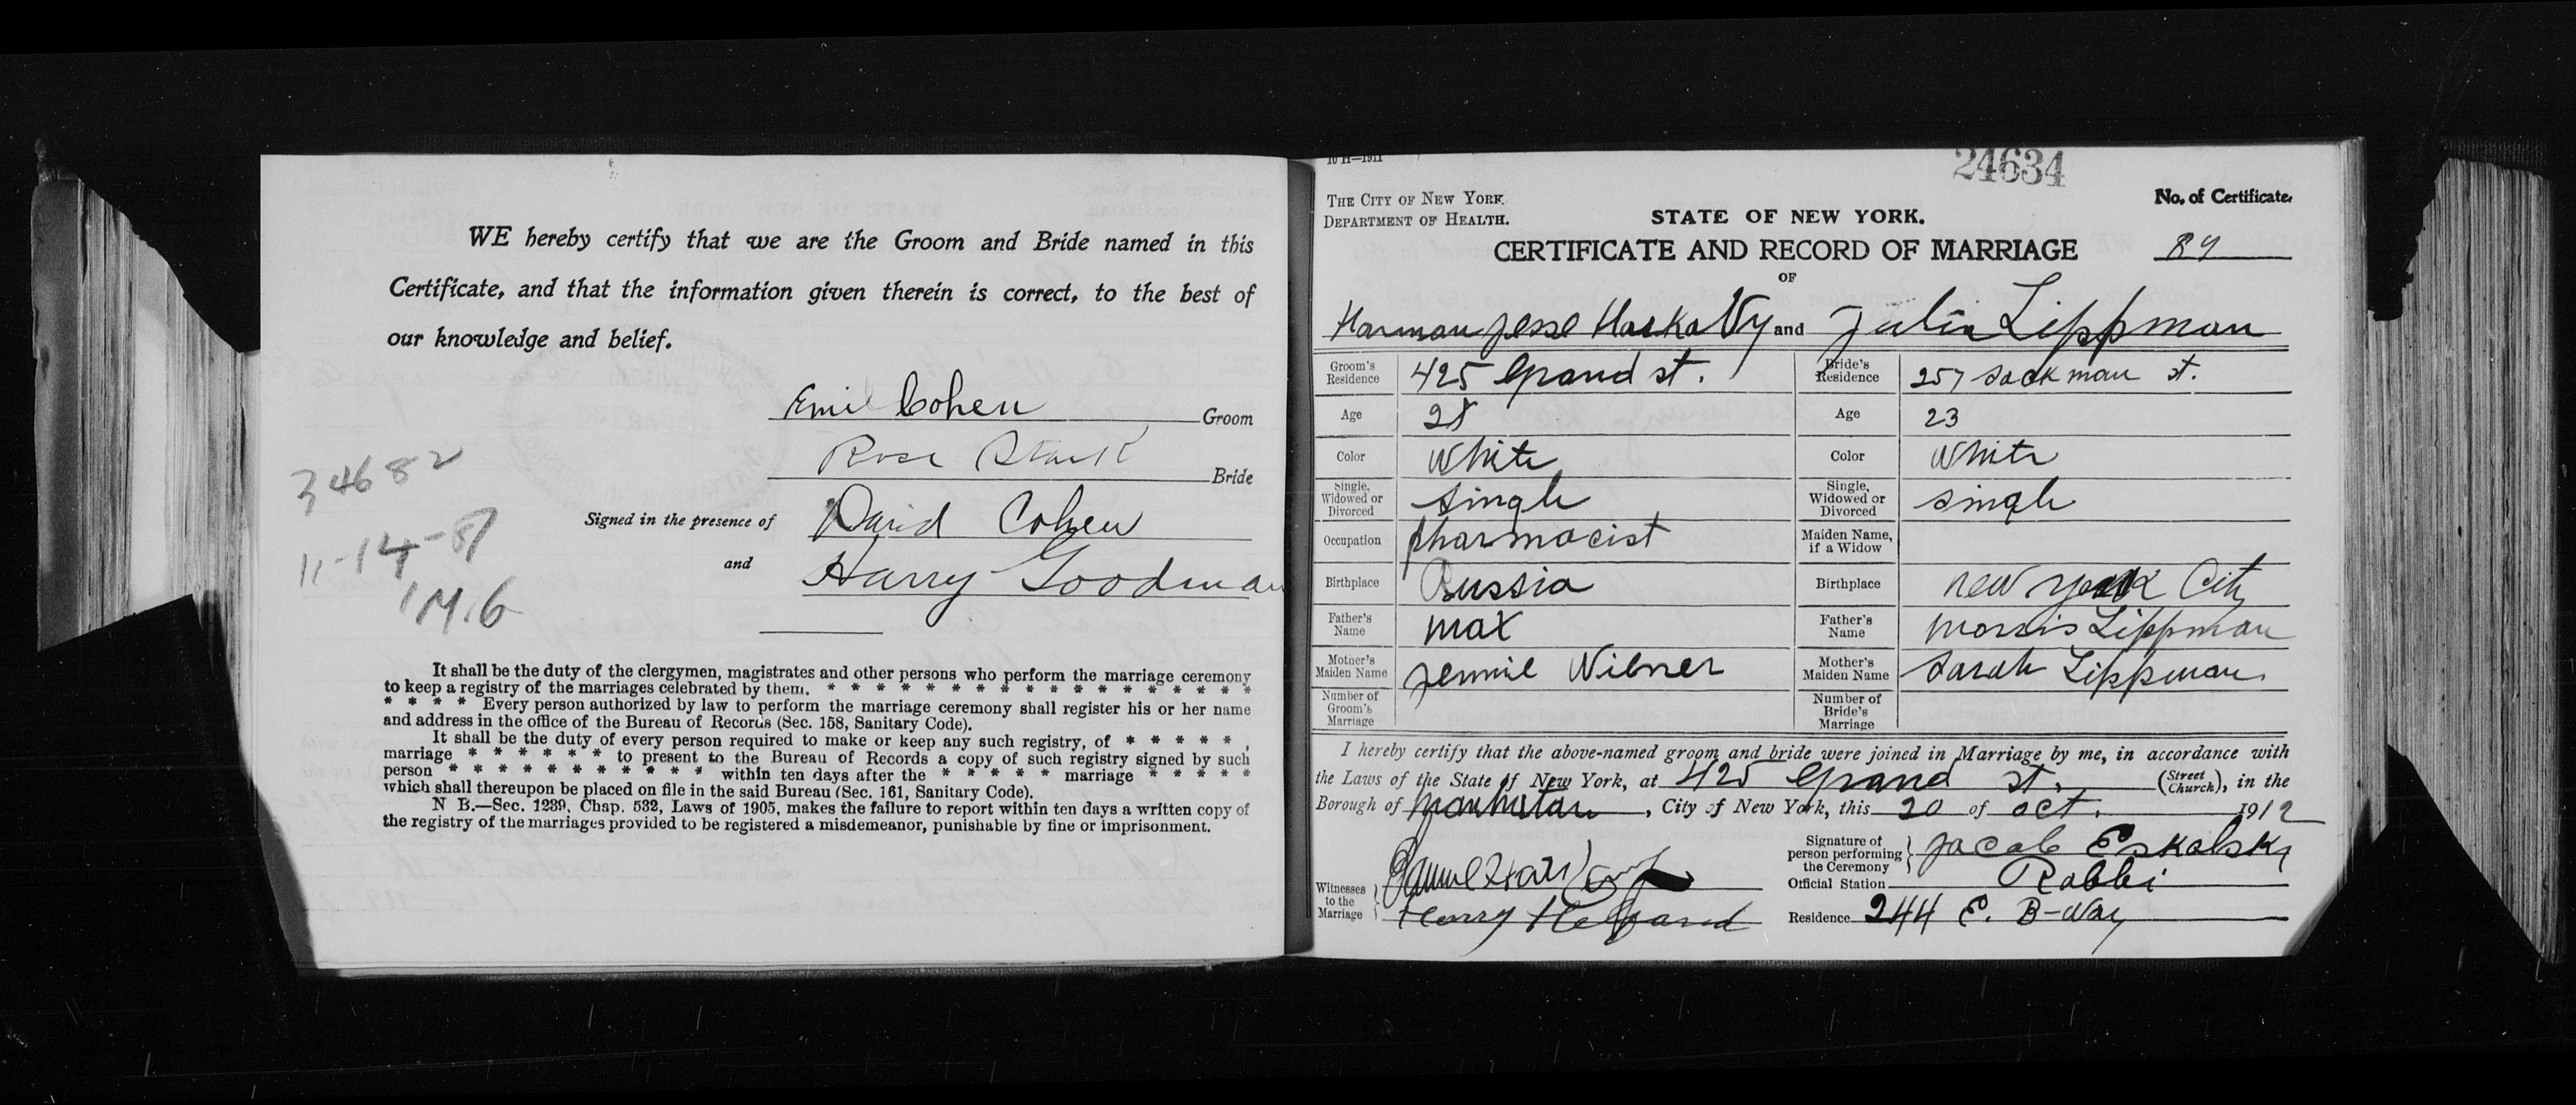 WE hereby certify that we are the Groom and Bride named in this
Certificate, and that the information given therein is correct, to the best of
our knowledge and belief.
Emil Cohen Groom
Rose Stark Bride
Signed in the presence of David Cohen
and Harry Goodman
34682
11-14-
M.G
It shall be the duty of the clergymen, magistrates and other persons who perform the marriage ceremony
to keep a registry of the marriages celebrated by them. * * * * * * * * * * * * * * * * * *
* * * * Every person authorized by law to perform the marriage ceremony shall register his or her name
and address in the office of the Bureau of Records (Sec. 158, Sanitary Code).
It shall be the duty of every person required to make or keep any such registry, of * * * * * ,
marriage * * * * * * to present to the Bureau of Records a copy of such registry signed by such
person * * * * * * * * * * * within ten days after the * * * * * marriage * * * * *
which shall thereupon be placed on file in the said Bureau (Sec. 161, Sanitary Code).
N B.—Sec. 1239, Chap. 532, Laws of 1905, makes the failure to report within ten days a written copy of
the registry of the marriages provided to be registered a misdemeanor, punishable by fine or imprisonment.
10 H—1911
24634
THE CITY OF NEW YORK.
DEPARTMENT OF HEALTH.
STATE OF NEW YORK.
No. of Certificate.
CERTIFICATE AND RECORD OF MARRIAGE
89
OF
Harman Jesse HaskaVy and Julia Lippman
Groom's Residence 425 Grand st. Bride's Residence 257 Sackman st.
Age 28 Age 23
Color White Color White
Single, Widowed or Divorced single Single, Widowed or Divorced single
Occupation pharmacist Maiden Name, if a Widow
Birthplace Russia Birthplace new york City
Father's Name max Father's Name morris Lippman
Mother's Maiden Name Jennie Wibner Mother's Maiden Name Sarah Lippman
Number of Groom's Marriage Number of Bride's Marriage
I hereby certify that the above-named groom and bride were joined in Marriage by me, in accordance with
the Laws of the State of New York, at 425 Grand st. (Street Church), in the
Borough of manhatan, City of New York, this 20 of oct. 1912
Witnesses to the Marriage
Samuel
Harry Helfand
Signature of person performing the Ceremony Jacob Eskolsky
Official Station Rabbi
Residence 244 E. B-Way